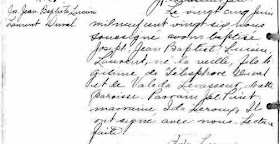 Jos. Jean Baptiste Lucien
Laurent Duval.
Le vingt cinq juin
mil neuf cent vingt six nous
soussigné avons baptisé
Joseph, Jean Baptiste, Lucien,
Laurent, né la veille, fils lé
gitime de Télesphore Duval
et de Valeda Levasseur, de cette
paroisse. Parrain
marraine Ida Leroux, Ils
ont signé avec nous. Lecture
faite.
Ida Leroux